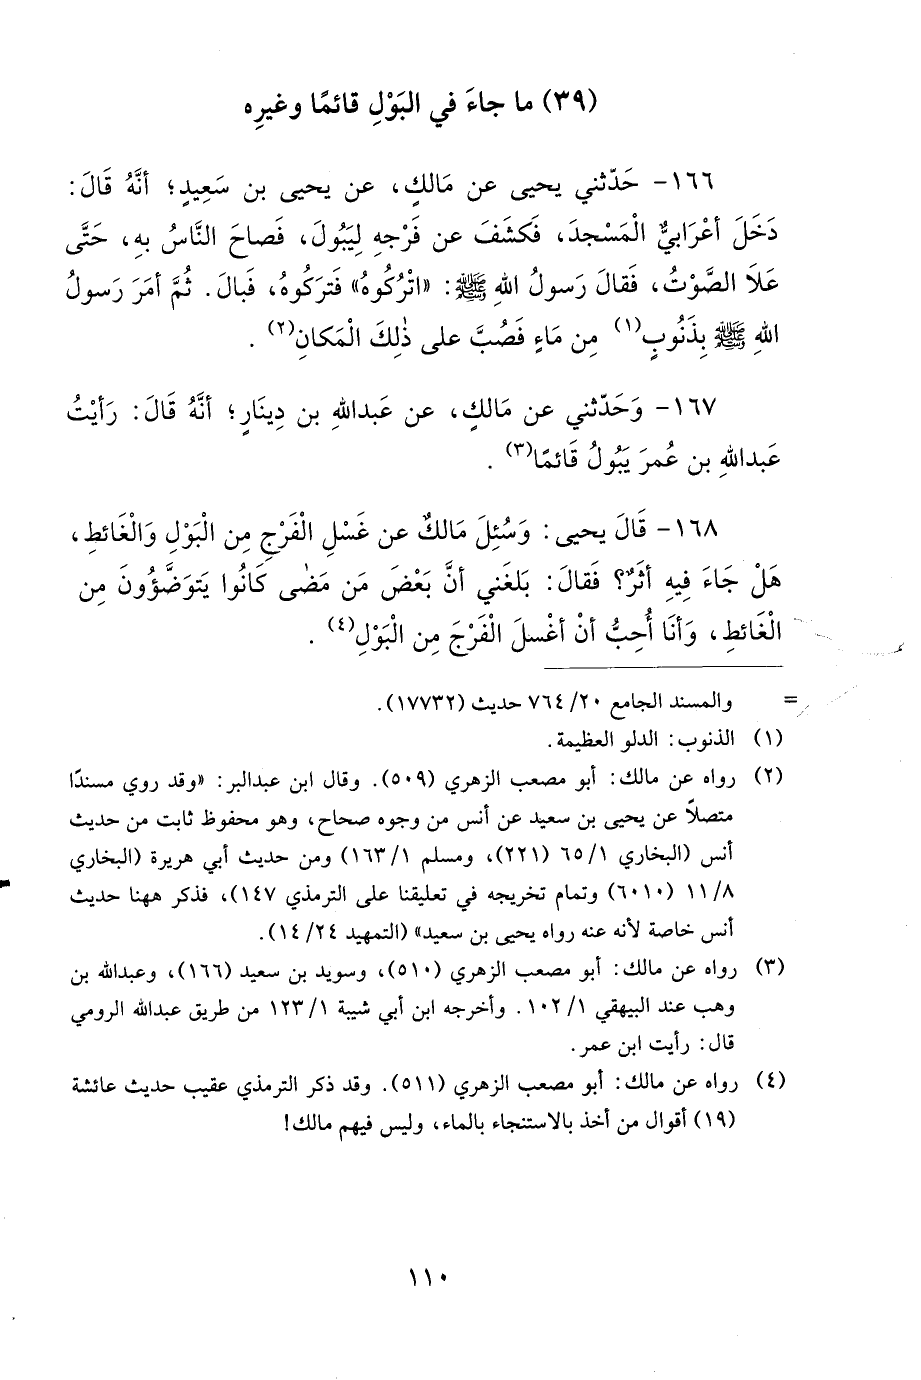 (٣٩) ما جاءَ في البَوْلِ قائمًا وغيرِه
١٦٦- حَدّثني يحيى عن مَالكٍ، عن يحيى بن سَعِيدٍ؛ أنَّهُ قَالَ:
دَخَلَ أعْرَابيٌّ الْمَسْجدَ، فَكشَفَ عن فَرْجهِ لِيَبُولَ، فَصاحَ النَّاسُ بهِ، حَتَّى
عَلاَ الصَّوْتُ، فَقالَ رَسولُ اللهِ ﷺ: «اتْرُكُوهُ» فَترَكُوهُ، فَبالَ. ثُمَّ أمَرَ رَسولُ
اللهِ ﷺ بِذَنُوبٍ(١) مِن مَاءٍ فَصُبَّ على ذٰلِكَ الْمَكانِ(٢) .
١٦٧- وَحَدّثني عن مَالكٍ، عن عَبدالله بن دِينَارٍ؛ أنَّهُ قَالَ: رَأيْتُ
عَبدالله بن عُمرَ يَبُولُ قَائمًا(٣) .
١٦٨- قَالَ يحيى: وَسُئِلَ مَالكٌ عن غَسْلِ الْفَرْجِ مِن الْبَوْلِ وَالْغَائطِ،
هَلْ جَاءَ فِيهِ أثَرٌ؟ فَقالَ: بَلغَني أنَّ بَعْضَ مَن مَضٰى كَانُوا يَتوَضَّؤُونَ مِن
الْغَائطِ، وَأنَا أُحِبُّ أنْ أغْسلَ الْفَرْجَ مِن الْبَوْلِ(٤) .
= والمسند الجامع ٢٠/ ٧٦٤ حديث (١٧٧٣٢).
(١) الذنوب: الدلو العظيمة.
(٢) رواه عن مالك: أبو مصعب الزهري (٥٠٩). وقال ابن عبدالبر: «وقد روي مسندًا
متصلاً عن يحيى بن سعيد عن أنس من وجوه صحاح، وهو محفوظ ثابت من حديث
أنس (البخاري ١/ ٦٥ (٢٢١)، ومسلم ١/ ١٦٣) ومن حديث أبي هريرة (البخاري
٨/ ١١ (٦٠١٠) وتمام تخريجه في تعليقنا على الترمذي ١٤٧)، فذكر ههنا حديث
أنس خاصة لأنه عنه رواه يحيى بن سعيد» (التمهيد ٢٤/ ١٤).
(٣) رواه عن مالك: أبو مصعب الزهري (٥١٠)، وسويد بن سعيد (١٦٦)، وعبدالله بن
وهب عند البيهقي ١/ ١٠٢. وأخرجه ابن أبي شيبة ١/ ١٢٣ من طريق عبدالله الرومي
قال: رأيت ابن عمر.
(٤) رواه عن مالك: أبو مصعب الزهري (٥١١). وقد ذكر الترمذي عقيب حديث عائشة
(١٩) أقوال من أخذ بالاستنجاء بالماء، وليس فيهم مالك!
١١٠